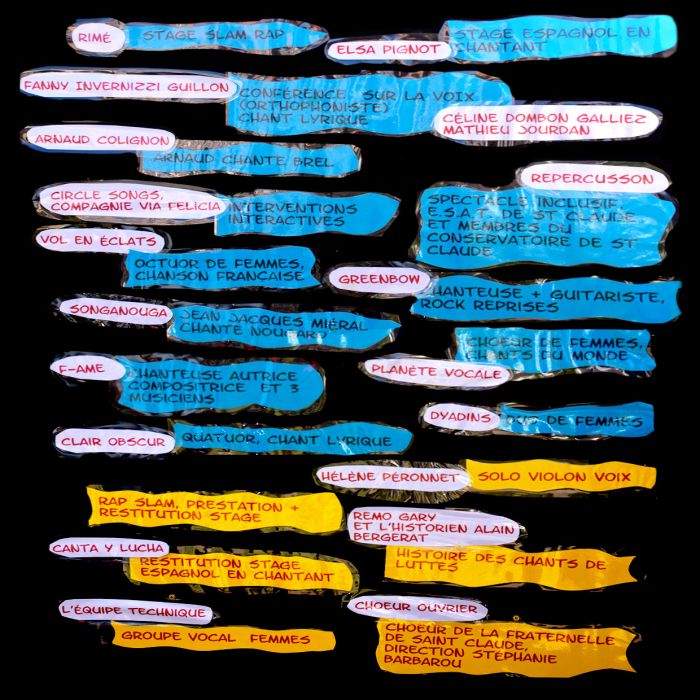 RIMÉ
STAGE SLAM RAP
ELSA PIGNOT
STAGE ESPAGNOL EN
CHANTANT
FANNY INVERNIZZI GUILLON
CONFÉRENCE SUR LA VOIX
(ORTHOPHONISTE)
CHANT LYRIQUE
CÉLINE DOMBON GALLIEZ
MATHIEU JOURDAN
ARNAUD COLIGNON
ARNAUD CHANTE BREL
REPERCUSSON
SPECTACLE INCLUSIF,
E.S.A.T. DE ST CLAUDE
ET MEMBRES DU
CONSERVATOIRE DE ST
CLAUDE
CIRCLE SONGS,
COMPAGNIE VIA FELICIA
INTERVENTIONS
INTERACTIVES
VOL EN ÉCLATS
OCTUOR DE FEMMES,
CHANSON FRANCAISE
GREENBOW
CHANTEUSE + GUITARISTE,
ROCK REPRISES
SONGANOUGA
JEAN JACQUES MIÉRAL
CHANTE NOUGARO
CHOEUR DE FEMMES,
CHANTS DU MONDE
PLANÈTE VOCALE
F-AME
CHANTEUSE AUTRICE
COMPOSITRICE ET 3
MUSICIENS
DYADINS
DUO DE FEMMES
CLAIR OBSCUR
QUATUOR, CHANT LYRIQUE
HÉLÈNE PÉRONNET
SOLO VIOLON VOIX
RAP SLAM, PRESTATION +
RESTITUTION STAGE
REMO GARY
ET L'HISTORIEN ALAIN
BERGERAT
HISTOIRE DES CHANTS DE
LUTTES
CANTA Y LUCHA
RESTITUTION STAGE
ESPAGNOL EN CHANTANT
L'ÉQUIPE TECHNIQUE
GROUPE VOCAL FEMMES
CHOEUR OUVRIER
CHOEUR DE LA FRATERNELLE
DE SAINT CLAUDE,
DIRECTION STÉPHANIE
BARBAROU